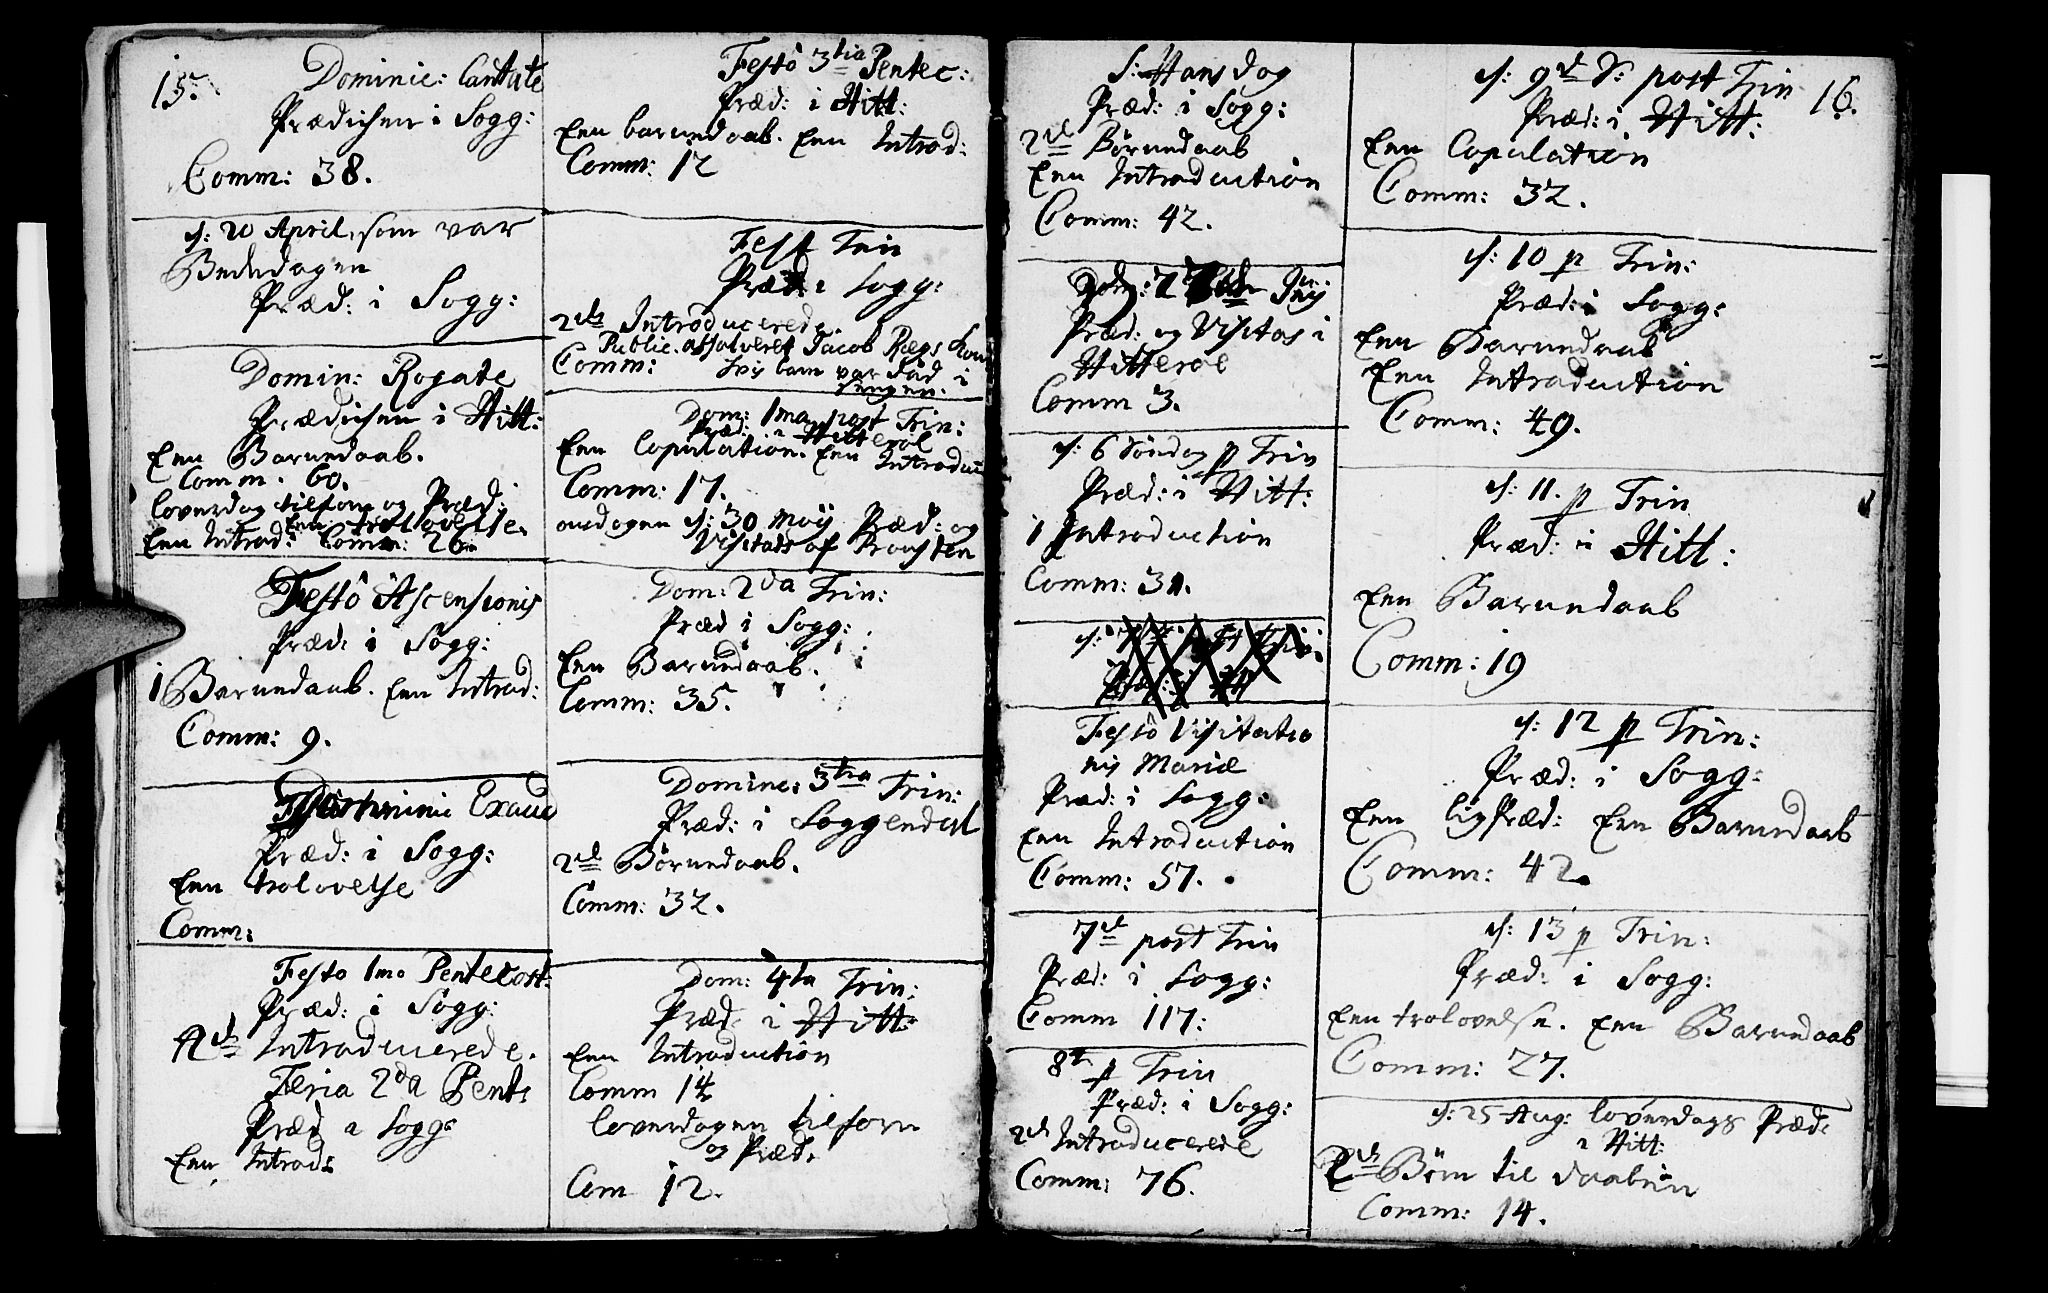 15.
Dominic: Cantate
Prædichen i Sogg:
Comm: 38.
d: 20 April, som var
Bededagen
Præd: i Sogg:
Domin: Rogate
Prædichen i Hitt:
Een Barnedaab.
Comm. 60.
løverdag tilforn og Præd:
Een trolovelse.
Een Introd: Comm: 26.
Festo Ascensionis
Præd: i Sogg:
1 Barnedaab. Een Introd:
Comm: 9.
Dominic Exaud
Præd: i Sogg:
Een trolovelse
Comm:
Festo 1mo Pentecost:
Præd: i Sogg:
Introducerede.
Feria 2da Pent:
Præd i Sogg:
Een Introd:
Festo 3tia Pentec:
Præd: i Hitt:
Een barnedaab. Een Introd:
Comm: 12
Fest Trin
Præd: i Sogg:
2de Introducerede.
Public. absolveret Jacob Rægs Kone
Comm: hvis barn var død i
sengen.
Dom: 1ma post Trin:
Præd: i Hitterøe
Een Copulation. Een Introduc
Comm: 17.
onsdagen d: 30 Maÿ Præd: og
Visitats af Provsten
Dom: 2da Trin:
Præd i Sogg:
Een Barnedaab.
Comm: 35.
Dominc: 3tia Trin:
Præd: i Soggendal
2de Børnedaab.
Comm: 32.
Dom: 4ta Trin:
Præd i Hitt:
Een Introduction
Comm 14
løverdagen tilforn
og Præd.
Com 12.
S: Hans dag
Præd: i Sogg:
2de Børnedaab
Een Introduction
Comm: 42.
Præd: og Visitas i
Hitterøe
Comm 3.
d: 6 Søndag p Trin
Præd: i Hitt:
1 Introduction
Comm: 31.
Festo Visitatio
nis Mariæ
Præd: i Sogg:
Een Introduction
Comm: 57.
7de post Trin
Præd: i Sogg:
Comm 117:
8de p Trin
Præd: i Sogg:
2de Introducerede
Comm: 76.
16.
d: 9de S: post Trin
Præd: i Hitt:
Een Copulation
Comm: 32.
d: 10 p Trin:
Præd: i Sogg:
Een Barnedaab
Een Introduction
Comm: 49.
d: 11. p Trin
Præd: i Hitt:
Een Barnedaab
Comm: 19
d: 12 p Trin:
Præd: i Sogg:
Een ligpræd: Een Barnedaab
Comm: 42.
d: 13 p Trin:
Præd: i Sogg:
Een trolovelse. Een Barnedaab
Comm: 27.
d: 25 Aug: løverdags Præd:
i Hitt:
2de Børn til daaben
Comm: 14.